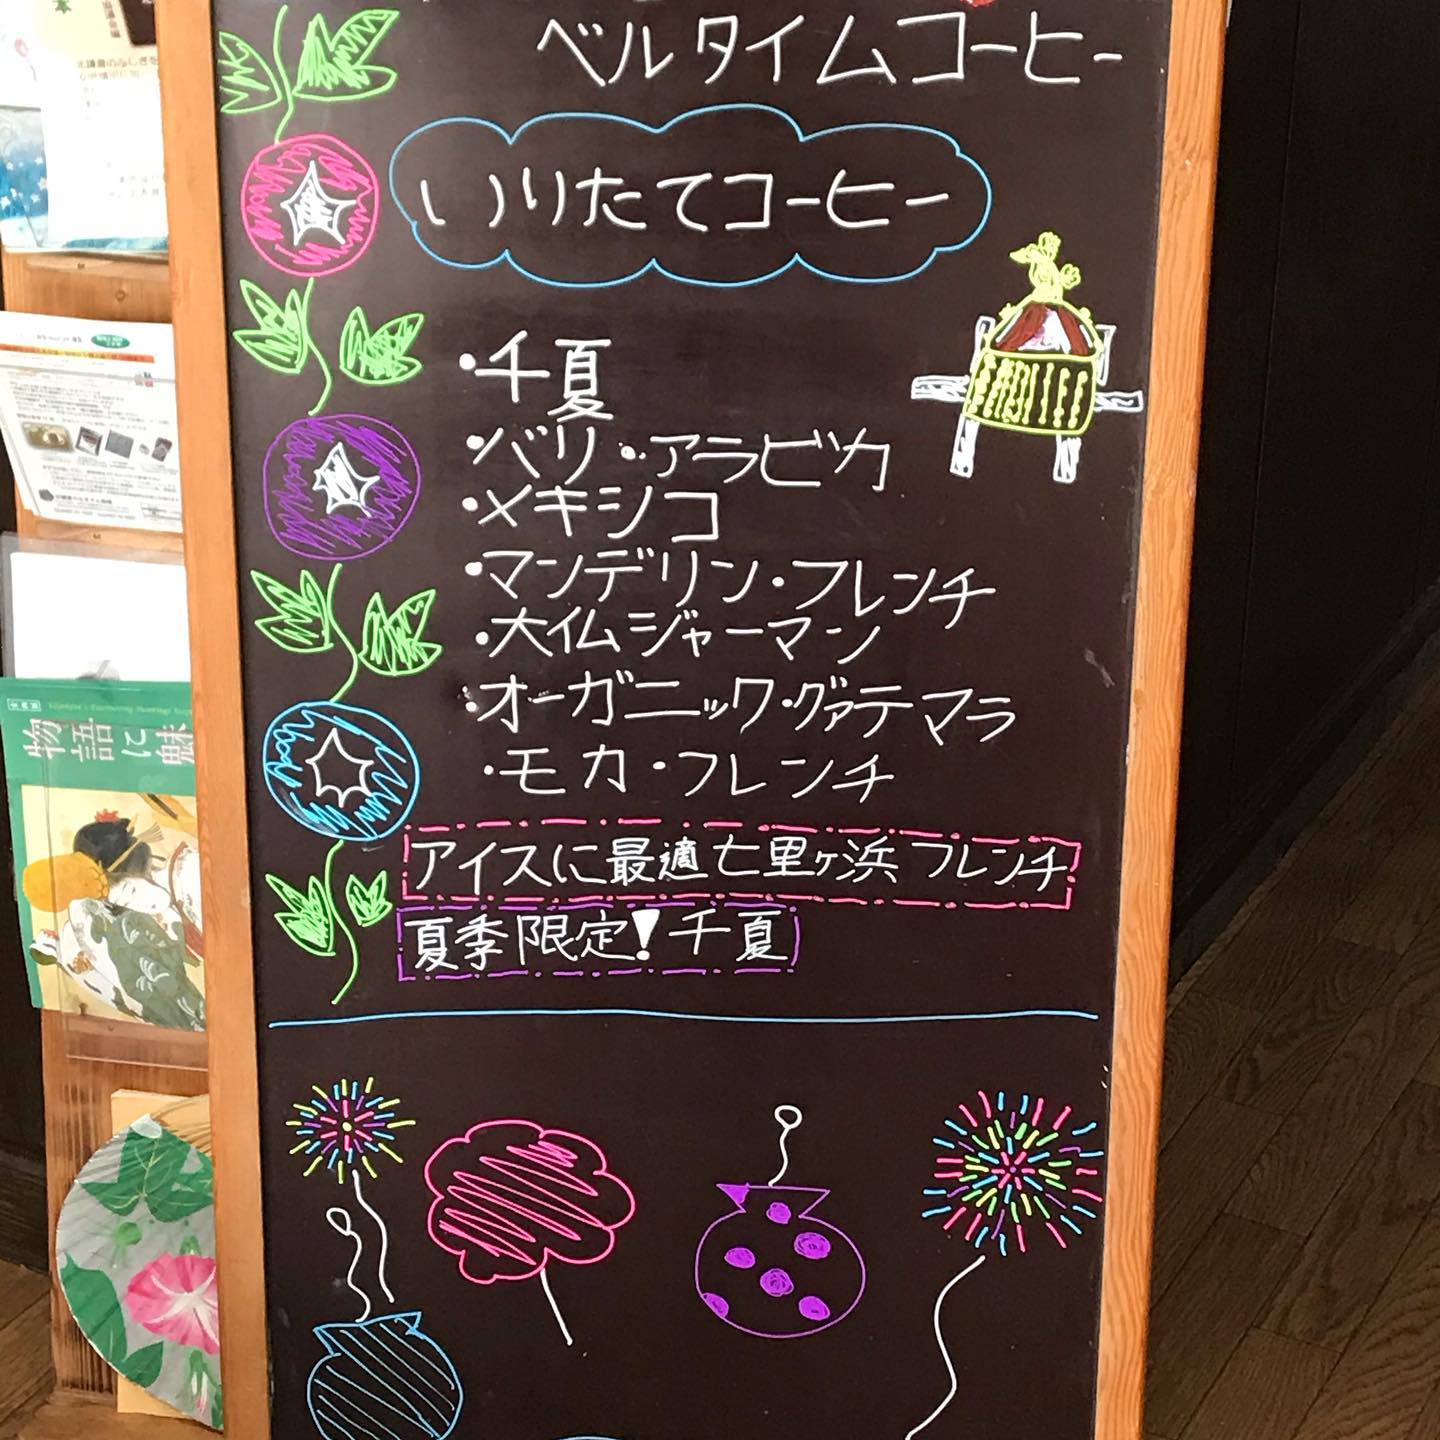 ベルタイムコーヒー
いりたてコーヒー
・千夏
・バリ・アラビカ
・メキシコ
・マンデリン・フレンチ
・大仏ジャーマン
・オーガニック・グァテマラ
・モカ・フレンチ
アイスに最適七里ヶ浜フレンチ
夏季限定!千夏
物語に魅